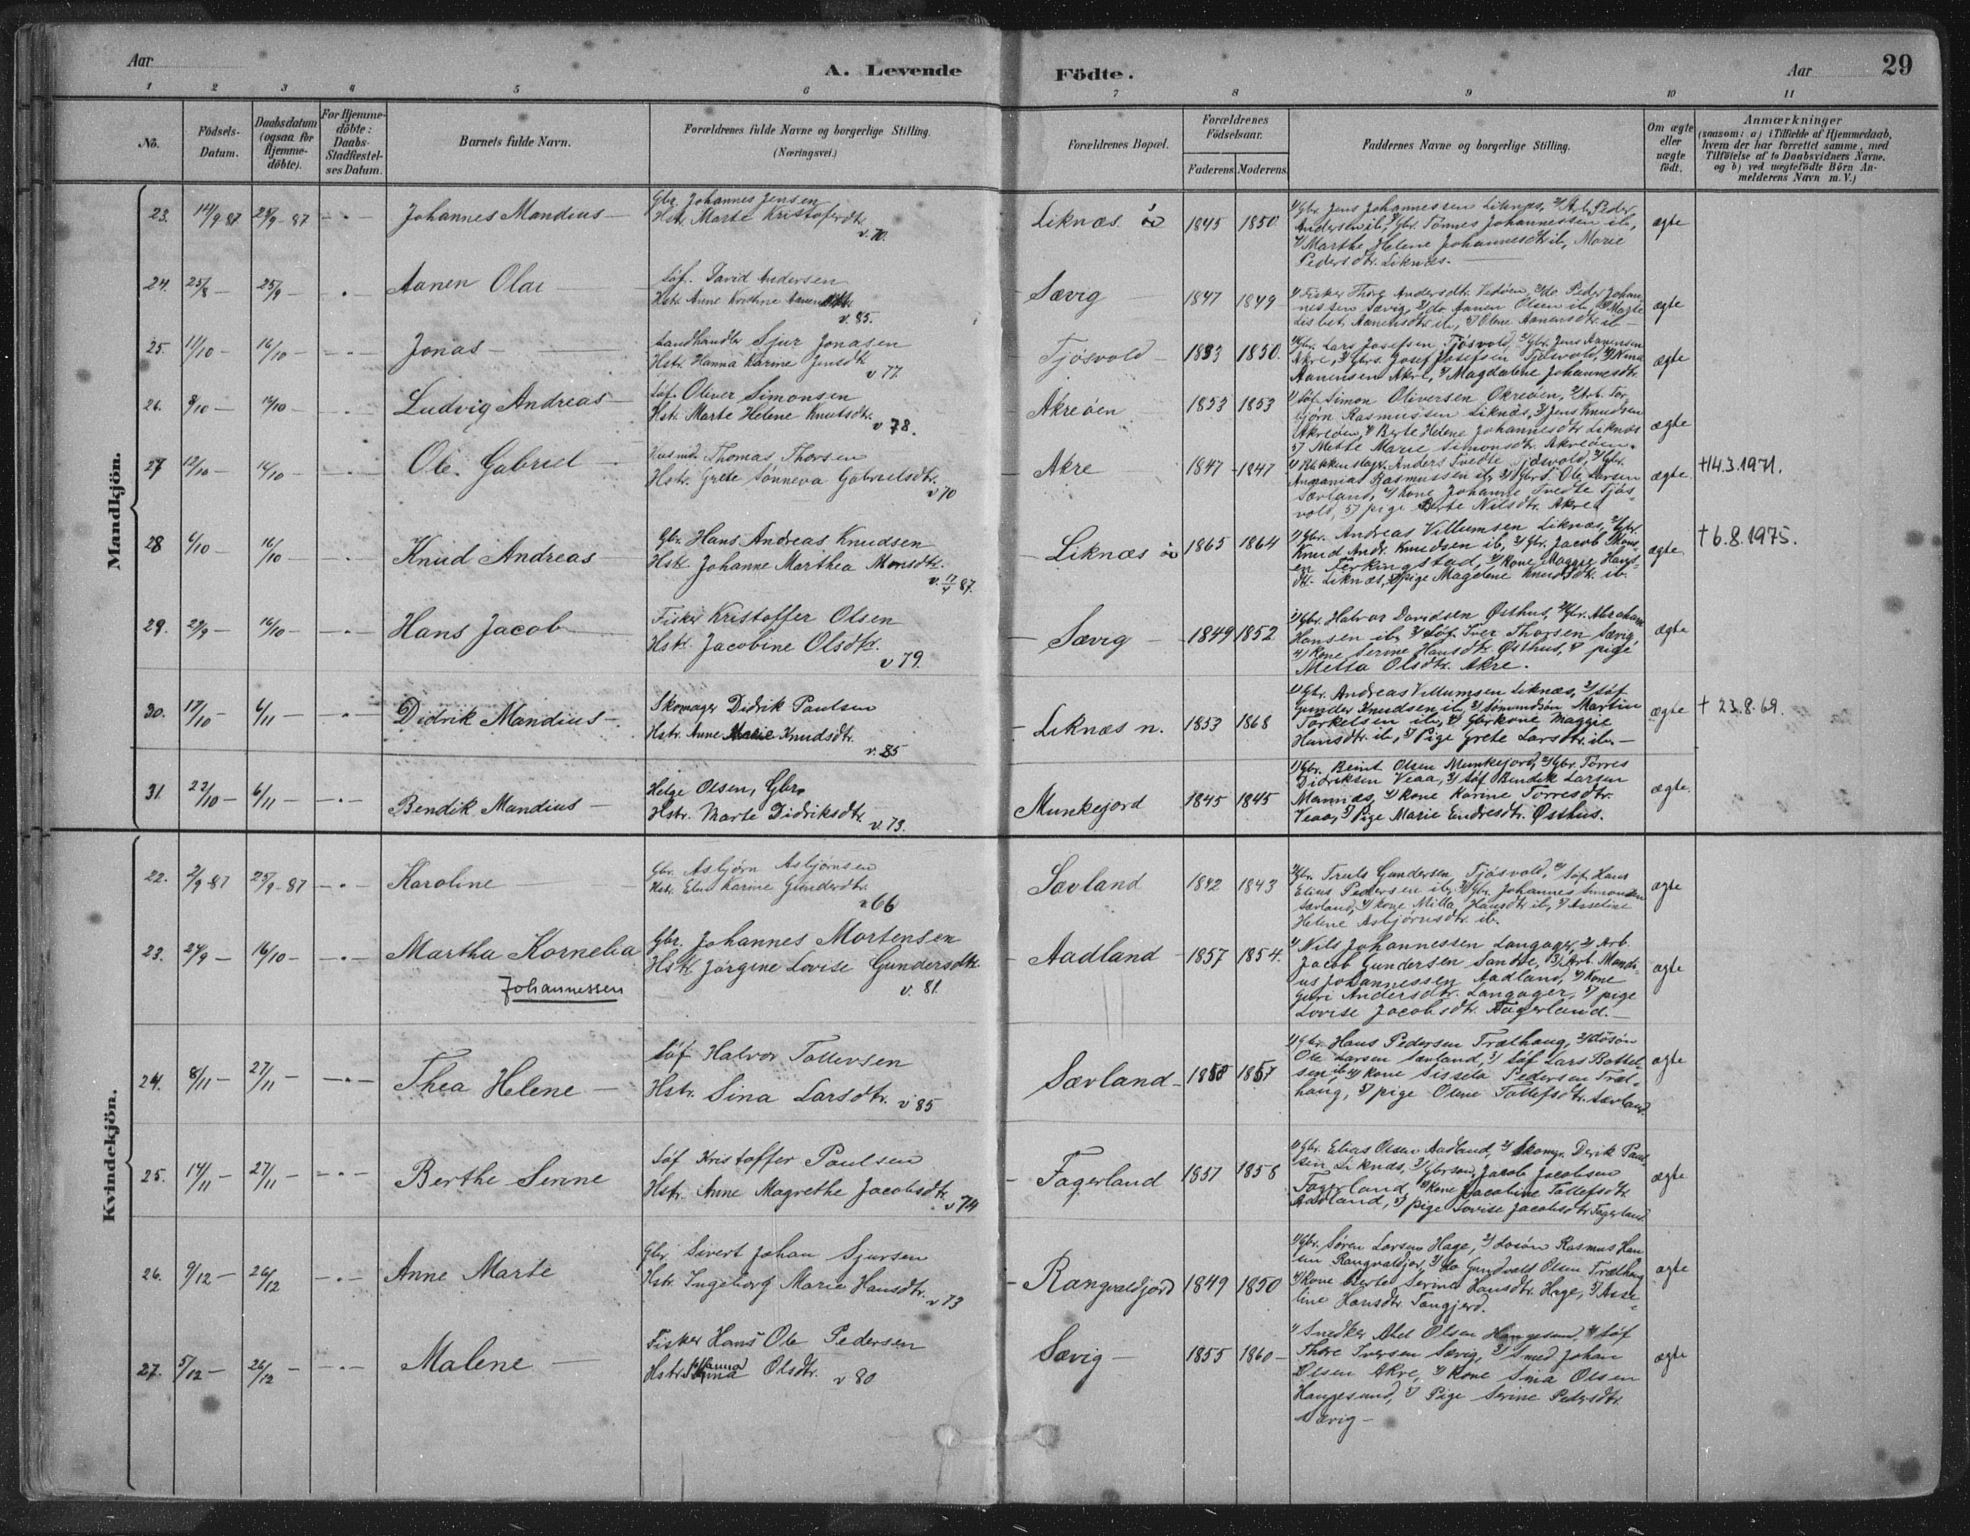 Aar
A. Levende
Födte.
Aar
29
1 2 3 4 5 6 7 8 9 10 11
No.
Födsels-
Datum.
Daabsdatum
(ogsaa for
Hjemme-
döbte).
For Hjemme-
döbte:
Daabs-
Stadfæstel-
ses Datum.
Barnets fulde Navn.
Forældrenes fulde Navne og borgerlige Stilling.
(Næringsvei.)
Forældrenes Bopæl.
Forældrenes
Födselsaar.
Faderens. Moderens.
Faddernes Navne og borgerlige Stilling.
Om ægte
eller
uægte
födt.
Anmærkninger
(saasom: a) i Tilfælde af Hjemmedaab,
hvem der har forrettet samme, med
Tilföielse af to Daabsvidners Navne.
og b) ved uægtefödte Börn An-
melderens Navn m. V.)
Mandkjön.
23. 14/9 87 25/9 - 87 Johannes Mandius
Gbr. Johannes Jensen
Hstr. Marte Kristofersdtr.
v. 70.
Liknæs 1845 1850
1) Gbr. Jens Johannessen Liknæs, 2) Arb. Peder
Andersen ib, 3) Gbr. Tønnes Johannessen ib,
4) Marthe Helene Johannesdtr ib, Marie
Pedersdtr. Liknæs.
ægte
24. 25/8 25/9 Aanen Olai
Søf. David Andersen
Hstr. Anne
v. 85.
Sævig 1847 1849
1) Fisker Thore Andersdtr. Vedøen, 2) do Peder Johan-
nessen Sævig, 3) do Aanen Olsen ib, 4) Marte
Lisbet Aanensdtr ib, 5) Olene Aanensdtr ib
ægte
25. 11/10 16/10 Jonas
Landhandler Sjur Jonasen
Hstr. Hanna Karine Jensdtr
v 77
Tjøsvold 1853 1850.
1) Gbr. Lars Josefsen Tjøsvold, 2) Gbr. Jens Aanensen
Akre, 3) Gbrs. Josef Josefsen Tjøsvold, 4)
Aanensen Akre, 5) Magdalene Johannesdtr
ægte
26. 9/10 16/10 Ludvig Andreas
Søf. Oliver Simonsen
Hstr. Marte Helene Knutsdtr.
v 78.
Akreøen 1853 1853
1) Søf. Simon Oliversen Okreøen, 2) Arb. Tor-
bjørn Rasmussen Liknæs, 3) Jens Knudsen
Akreøen, 4) Berte Helene Johannesdtr Liknæs
5) Mette Marie Simonsdtr. Akreøen.
ægte
27 12/10 16/10 Ole Gabriel
Thomas Thorsen
Hstr. Grete Sønneva Gabrielsdtr.
v 70
Akre 1847 1847
1) Blikkenslagr. Anders Tvedte Tjøsvold, 2) Gbr.
Ananias Rasmussen ib, 3) Gbrs. Ole Larsen
Særland, 4) Kone Johanne Tvedte Tjøs-
vold, 5) pige Berte Nilsdtr. Akre
ægte
†14.3.1971.
28 6/10 16/10 Knud Andreas
Gbr. Hans Andreas Knudsen
Hstr Johanne Marthea Monsdtr.
v. 87.
Liknæs 1865 1864
1) Gbr. Andreas Villumsen Liknæs, 2) Gbr.
Knud Andr. Knudsen ib, 3) Gbr. Jacob Mons-
en Ferkingstad, 4) Kone Maggie Hans-
dtr. Liknæs, 5) pige Magdelene Knudsdtr ib.
ægte
† 6.8.1975.
29. 29/9 16/10 Hans Jacob
Fisker Kristoffer Olsen
Hstr. Jacobine Olsdtr.
v 79.
Sævig 1849 1852
1) Gbr. Halvor Davidsen Østhus, 2) Gbr. Abraham
Hansen ib, 3) Søf. Iver Thorsen Sævig,
4) Kone Serine Hansdtr. Østhus, 5) pige
Metta Olsdtr. Akre.
ægte
30. 17/10 6/11 Didrik Mandius
Skomager Didrik Paulsen
Hstr. Anne Marie Knudsdtr.
v. 85
Liknæs n. 1853 1868
1) Gbr. Andreas Villumsen Liknæs, 2) Søf
Gunder Knudsen ib, 3) Sømandsøn Martin
Torkelsen ib, 4) Gbrkone Maggie
Hansdtr ib, 5) Pige Grete Larsdtr. ib.
ægte
† 23.8.69.
31. 22/10 6/11 Bendik Mandius
Helge Olsen, Gbr.
Hstr. Marte Didriksdtr
v. 73.
Munkejord 1845 1845
1) Gbr. Beint Olsen Munkejord, 2) Gbr. Torres
Didriksen Veaa, 3) Søf Bendik Larsen
Mannæs, 4) Kone Karine Torresdtr.
Veaa, 5) Pige Marie Endresdtr. Østhus.
ægte.
Kvindekjön.
22. 2/9 87 25/9 - 87 Karoline
Gbr. Asbjørn Asbjørnsen
Hstr. Karine Gundersdtr.
v 66
Sævland 1842 1843
1) Gbr. Truls Gundersen Tjøsvold, 2) Søf. Hans
Elias Pedersen ib, 3) Gbr. Johannes Simonsen
Særland, 4) Kone Milla Hansdtr ib, 5) Asseline
Helene Asbjørnsdtr. ib.
ægte
23. 24/9 16/10 Martha Kornelia
Johannessen
Gbr. Johannes Mortensen
Hstr Jørgine Lovise Gundersdtr.
v. 81.
Aadland 1857 1854.
1) Nils Johannessen Langager, 2) Arb.
Jacob Gundersen Sandve, 3) Arb. Mandi-
us Johannessen Aadland, 4) Kone
Guri Andersdtr. Langager, 5) pige
Lovise Jacobsdtr. Fagerland.
ægte
24. 8/11 27/11 Thea Helene
Søf Halvor Tollevsen
Hstr. Sina Larsdtr.
v 85
Særland 1858 1857
1) Gbr. Hans Pedersen Trælhaug, 2)
Ole Larsen Særland, 3) Søf Lars Bottel-
sen ib, 4) Kone Sissela Pedersen Træl-
haug, 5) pige Olene Tollefsdtr. Særland
ægte
25. 14/11 27/11 Berthe Serine
Søf Kristoffer Paulsen
Hstr. Anne Magrethe Jacobsdtr
v 74
Fagerland 1851 1858
1) Gbr. Elias Olsen Aadland, 2) Skomgr. Derik Paul-
sen Liknæs, 3) Gbrsøn Jacob Jacobsen
Fagerland, 4) Kone Jacobine Tollefsdtr
Aadland, 5) pige Lovise Jacobsdtr Fagerland.
ægte
26. 9/12 26/12 Anne Marte
Gbr. Sivert Johan Sjursen
Hstr. Ingeborg Marie Hansdtr.
v 73
Rangvaldjord 1849 1850
1) Gbr. Søren Larsen Hage, 2) Rasmus Han-
sen Rangvaldjor, 3) do Gundvald Olsen Trælhaug
4) Kone Berte Serine Hansdtr. Hage, 5) Asse-
line Hansdtr. Tangjerd.
ægte
27. 5/12 26/12 Malene
Fisker Hans Ole Pedersen
Hstr. Johanna Olsdtr.
v 80
Sævig 1855 1860
1) Snedker Abel Olsen Haugesund, 2) Søf
Thore Iversen Sævig, 3) Smed Johan
Olsen Akre, 4) Kone Sina Olsen
Haugesund, 5) Pige Serine Pedersdtr.
Sævig
ægte